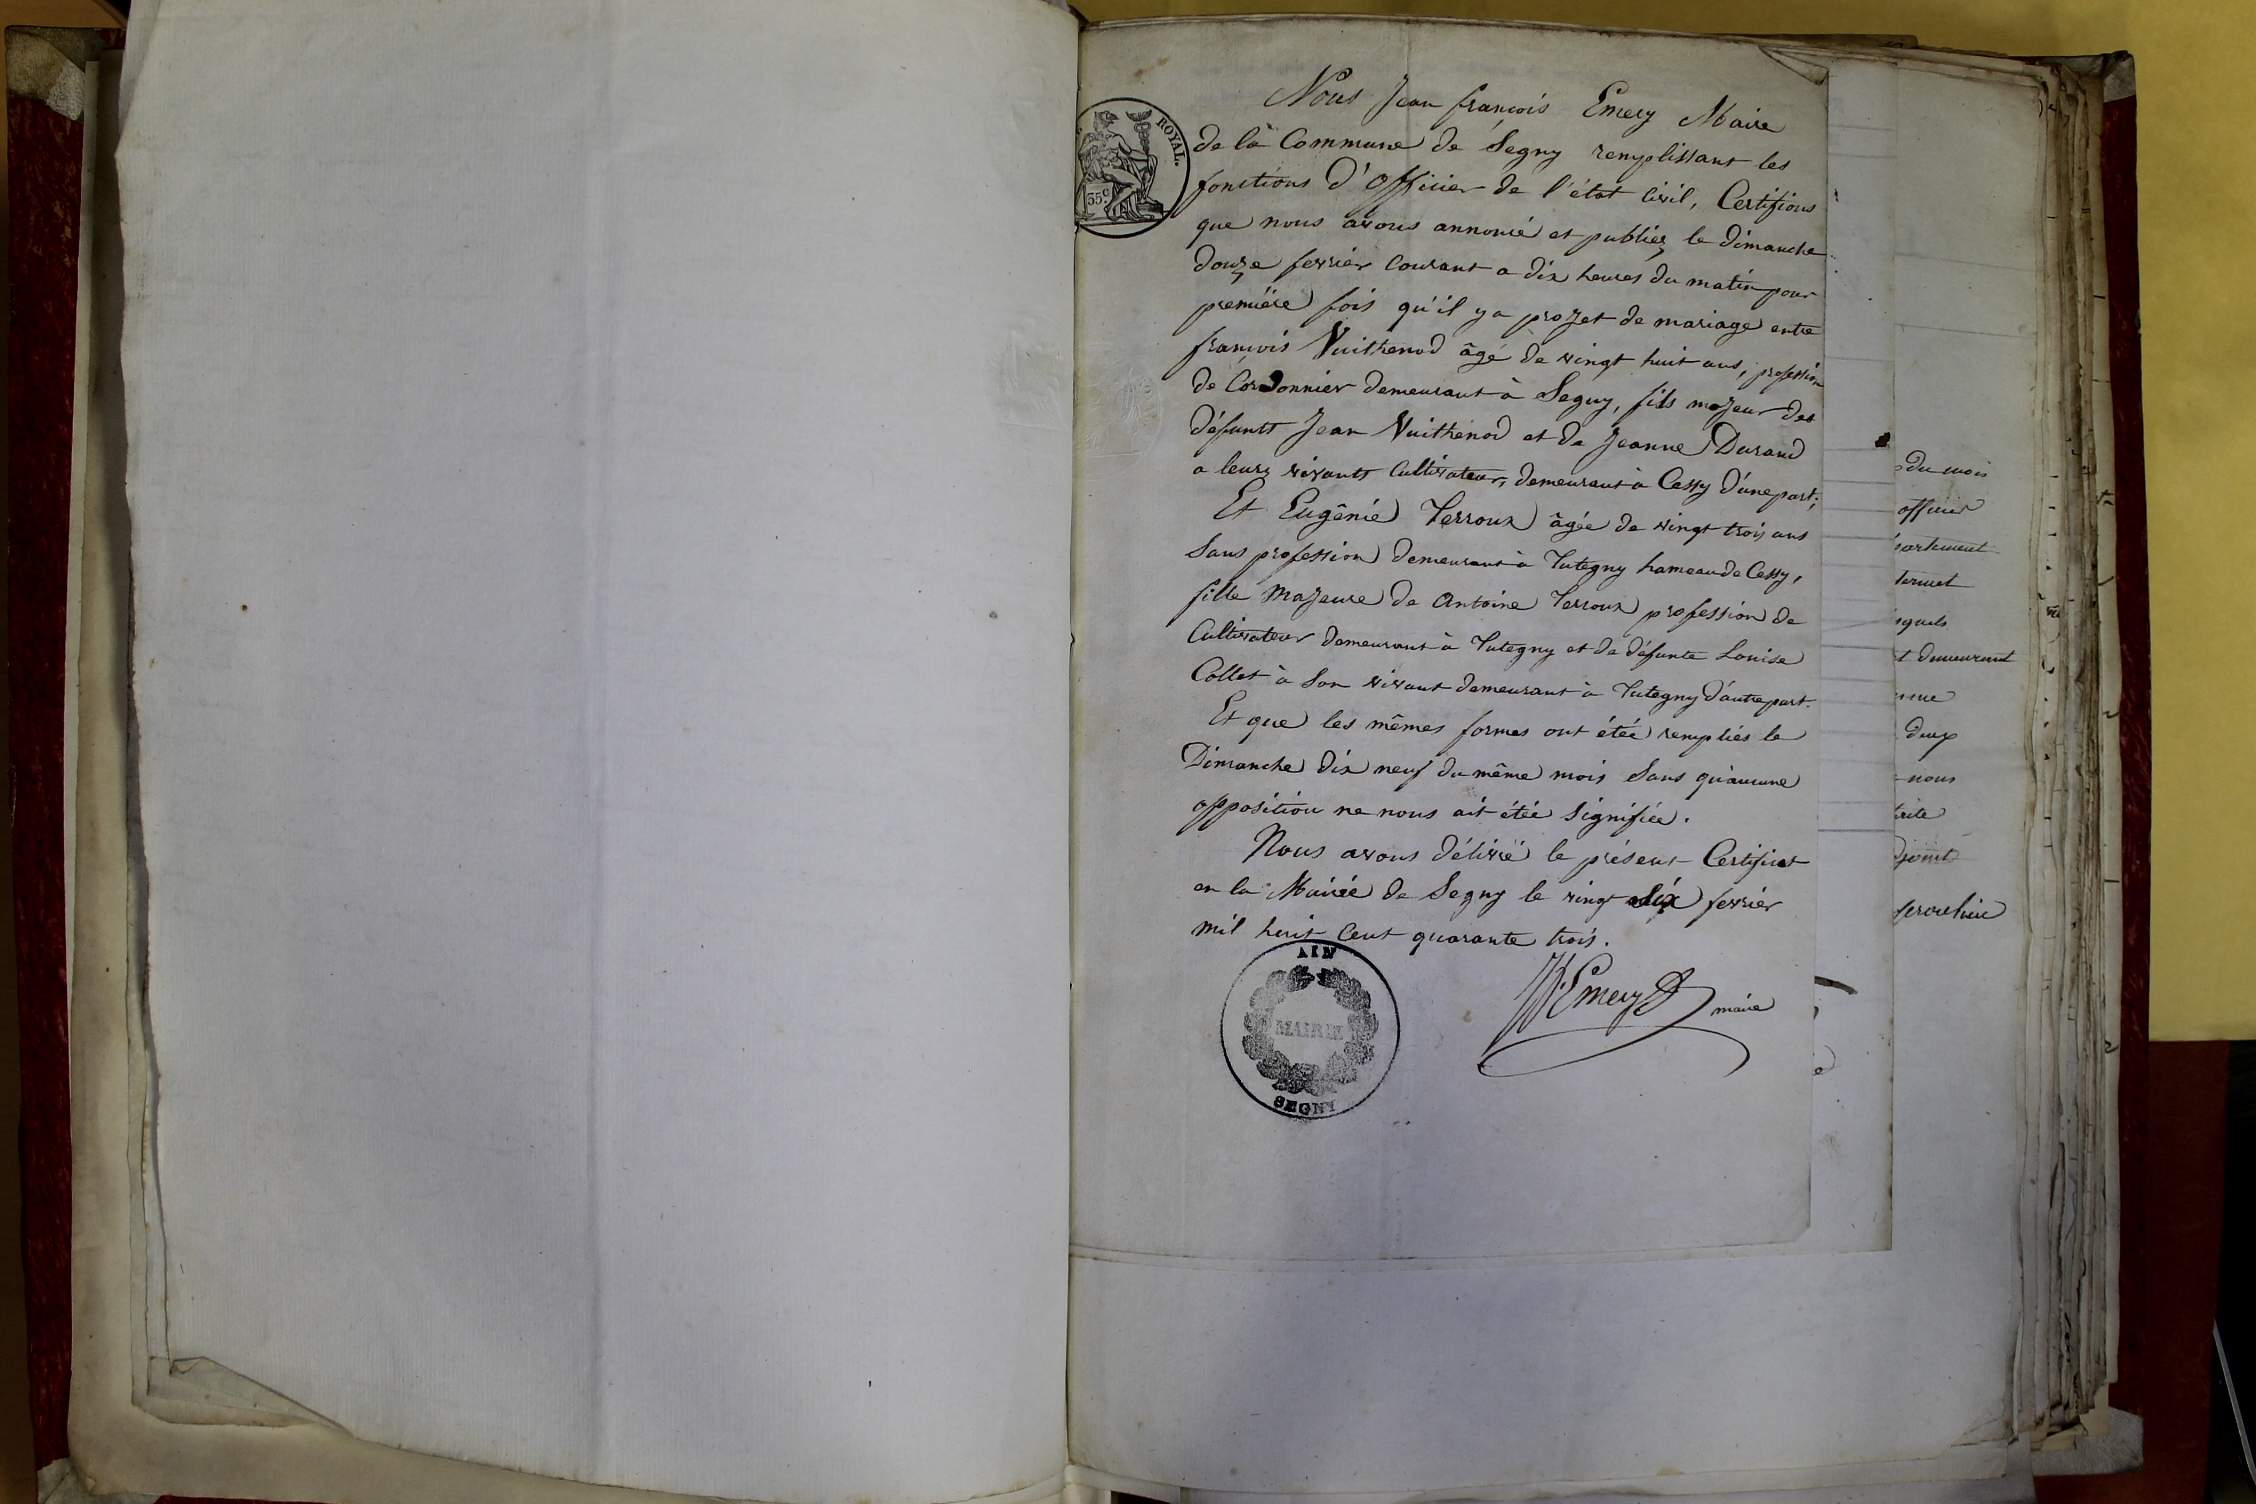 ROYAL.
35 c.
Nous Jean françois Emery Maire
de la Commune de Segny remplissant les
fonctions d'Officier de l'état Civil, Certifions
que nous avons annoncé et publiéz le dimanche
douze fevrier Courant a dix heures du matin pour
première fois qu'il y a projet de mariage entre
françois Vuithenod âgé de vingt huit ans, profession
de Cordonnier demeurant à Segny, fils majeur des
défunts Jean Vuithenod et de Jeanne Durand
a leurs vivants Cultivateur, demeurant à Cessy d'une part;
Et Eugénie Terroux âgée de vingt trois ans
Sans profession demeurant à Tutegny hameau de Cessy,
fille Majeure de Antoine Terroux profession de
Cultivateur demeurant à Tutegny et de défunte Louise
Collet à Son vivant demeurant à Tutegny d'autre part.
Et que les mêmes formes ont étéé rempliés le
Dimanche dix neuf du même mois Sans qu'aucune
opposition ne nous ait étéé Signifiée.
Nous avons délivré le présent Certificat
en la Mairie de Segny le vingt Six fevrier
mil huit Cent quarante trois.
AIN
MAIRIE
SEGNY
JF Emery maire
du mois
officier
demeurant
deux
nous